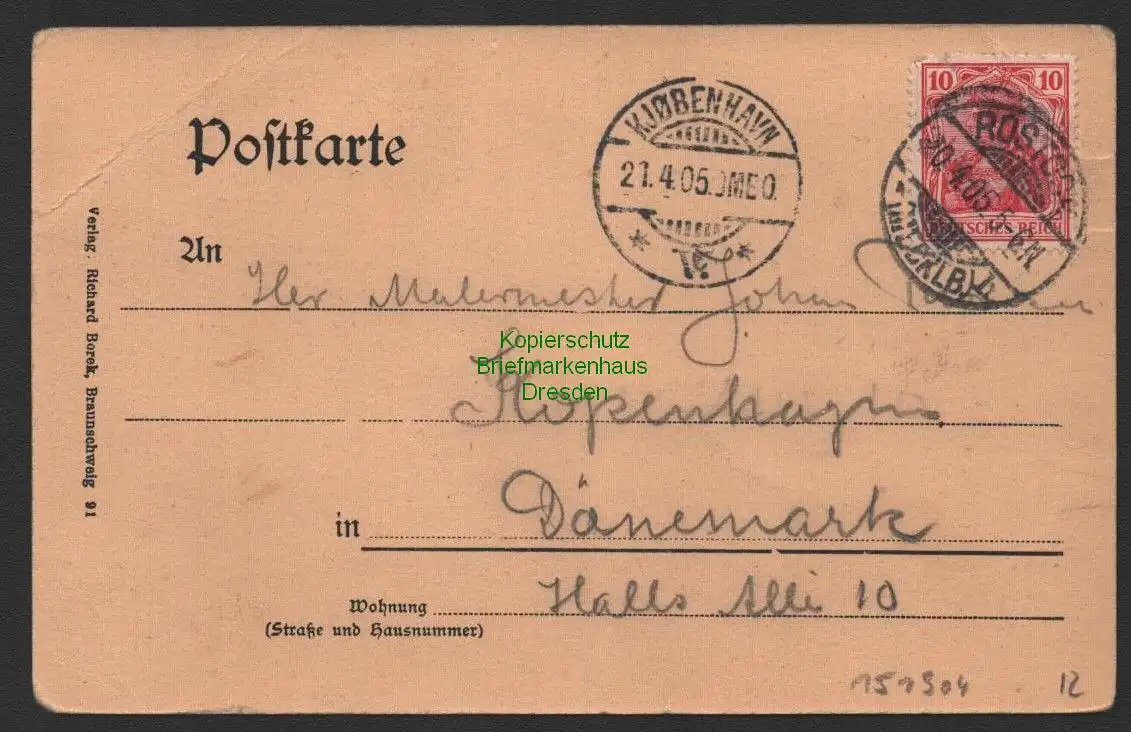 Postkarte
KJØBENHAVN
21.4.05. OMB0.
10 10
DEUTSCHES REICH
ROSTOCK
20.4.05. 5-6N.
(MECKLB) 4
Verlag: Richard Borek, Braunschweig 91
An
Her Malermester Johan
Kopierschutz
Briefmarkenhaus
Dresden
Kopenhagen
in Dänemark
Wohnung Halls Alli 10
(Straße und Hausnummer)
151904 12